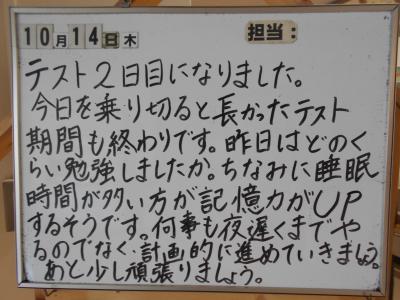 10月14日木 担当:
テスト2日目になりました。
今日を乗り切ると長かったテスト
期間も終わりです。昨日はどのく
らい勉強しましたか。ちなみに睡眠
時間が多い方が記憶力がUP
するそうです。何事も夜遅くまでや
るのでなく、計画的に進めていきましょう。
あと少し頑張りましょう。